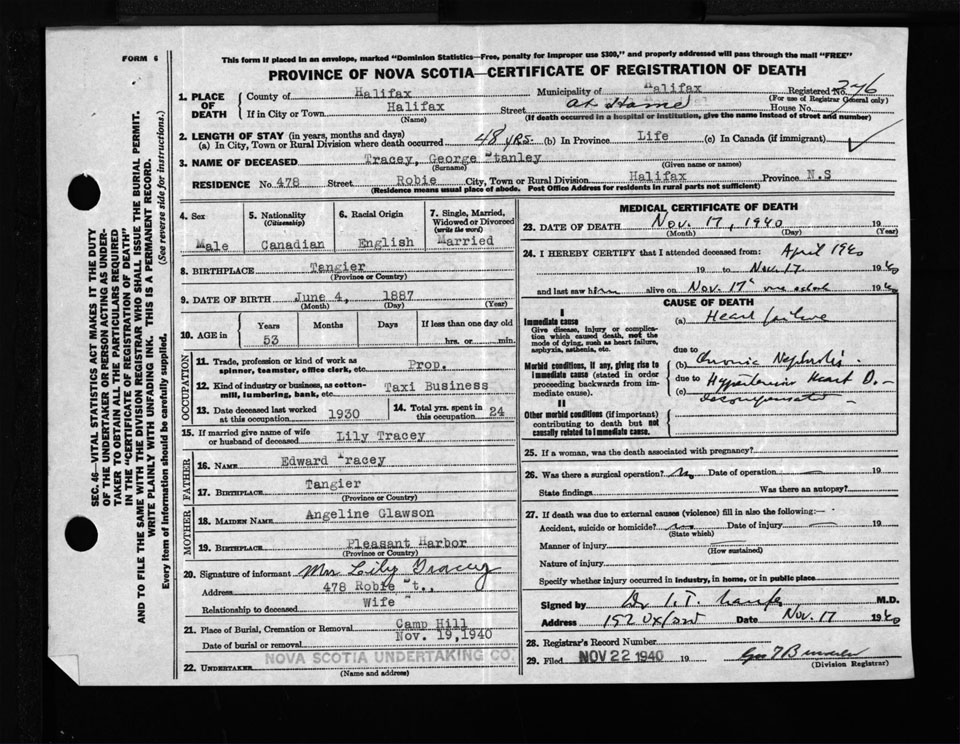 FORM 6
This form if placed in an envelope, marked "Dominion Statistics—Free, penalty for improper use $300," and properly addressed will pass through the mail "FREE"
PROVINCE OF NOVA SCOTIA—CERTIFICATE OF REGISTRATION OF DEATH
SEC. 46—VITAL STATISTICS ACT MAKES IT THE DUTY
OF THE UNDERTAKER OR PERSON ACTING AS UNDER-
TAKER TO OBTAIN ALL THE PARTICULARS REQUIRED
IN THE "CERTIFICATE OF REGISTRATION OF DEATH"
AND TO FILE THE SAME WITH THE DIVISION REGISTRAR WHO SHALL ISSUE THE BURIAL PERMIT.
WRITE PLAINLY WITH UNFADING INK. THIS IS A PERMANENT RECORD.
Every item of information should be carefully supplied. (See reverse side for instructions.)
1. PLACE OF DEATH
County of Halifax Municipality of Halifax Registered No. 246
(For use of Registrar General only)
If in City or Town Halifax Street At Home House No.
(Name) (If death occurred in a hospital or institution, give the name instead of street and number)
2. LENGTH OF STAY (in years, months and days)
(a) In City, Town or Rural Division where death occurred 48 yrs. (b) In Province Life (c) In Canada (if immigrant)
3. NAME OF DECEASED Tracey, George Stanley
(Surname) (Given name or names)
RESIDENCE No. 478 Street Robie City, Town or Rural Division Halifax Province N.S
(Residence means usual place of abode. Post Office Address for residents in rural parts not sufficient)
4. Sex Male
5. Nationality (Citizenship) Canadian
6. Racial Origin English
7. Single, Married, Widowed or Divorced (write the word) Married
8. BIRTHPLACE Tangier
(Province or Country)
9. DATE OF BIRTH June 4, 1887
(Month) (Day) (Year)
10. AGE in Years 53 Months Days If less than one day old hrs. or min.
OCCUPATION
11. Trade, profession or kind of work as spinner, teamster, office clerk, etc. Prop.
12. Kind of industry or business, as cotton-mill, lumbering, bank, etc. Taxi Business
13. Date deceased last worked at this occupation 1930
14. Total yrs. spent in this occupation 24
15. If married give name of wife or husband of deceased Lily Tracey
FATHER
16. NAME Edward Tracey
17. BIRTHPLACE Tangier
(Province or Country)
MOTHER
18. MAIDEN NAME Angeline Glawson
19. BIRTHPLACE Pleasant Harbor
(Province or Country)
20. Signature of informant Mrs Lily Tracey
Address 478 Robie St.,
Relationship to deceased Wife
21. Place of Burial, Cremation or Removal Camp Hill
Date of burial or removal Nov. 19, 1940
22. UNDERTAKER NOVA SCOTIA UNDERTAKING CO.
(Name and address)
MEDICAL CERTIFICATE OF DEATH
23. DATE OF DEATH Nov. 17, 1940 19
(Month) (Day) (Year)
24. I HEREBY CERTIFY that I attended deceased from: April 1940
19 to Nov. 17 1940
and last saw him alive on Nov. 17 1940
CAUSE OF DEATH
I
Immediate cause
Give disease, injury or complication which caused death, not the mode of dying, such as heart failure, asphyxia, asthenia, etc.
(a) Heart failure
due to
Morbid conditions, if any, giving rise to immediate cause (stated in order proceeding backwards from immediate cause).
(b) Chronic Nephritis
due to
(c) Hypertensive Heart D.—
decompensated
II
Other morbid conditions (if important) contributing to death but not causally related to immediate cause.
25. If a woman, was the death associated with pregnancy?
26. Was there a surgical operation? no Date of operation 19
State findings Was there an autopsy?
27. If death was due to external causes (violence) fill in also the following:—
Accident, suicide or homicide? no Date of injury 19
(State which)
Manner of injury
(How sustained)
Nature of injury
Specify whether injury occurred in industry, in home, or in public place
Signed by Dr I. T. M.D.
Address 152 Oxford Date Nov. 17 1940
28. Registrar's Record Number
29. Filed NOV 22 1940 19
(Division Registrar)